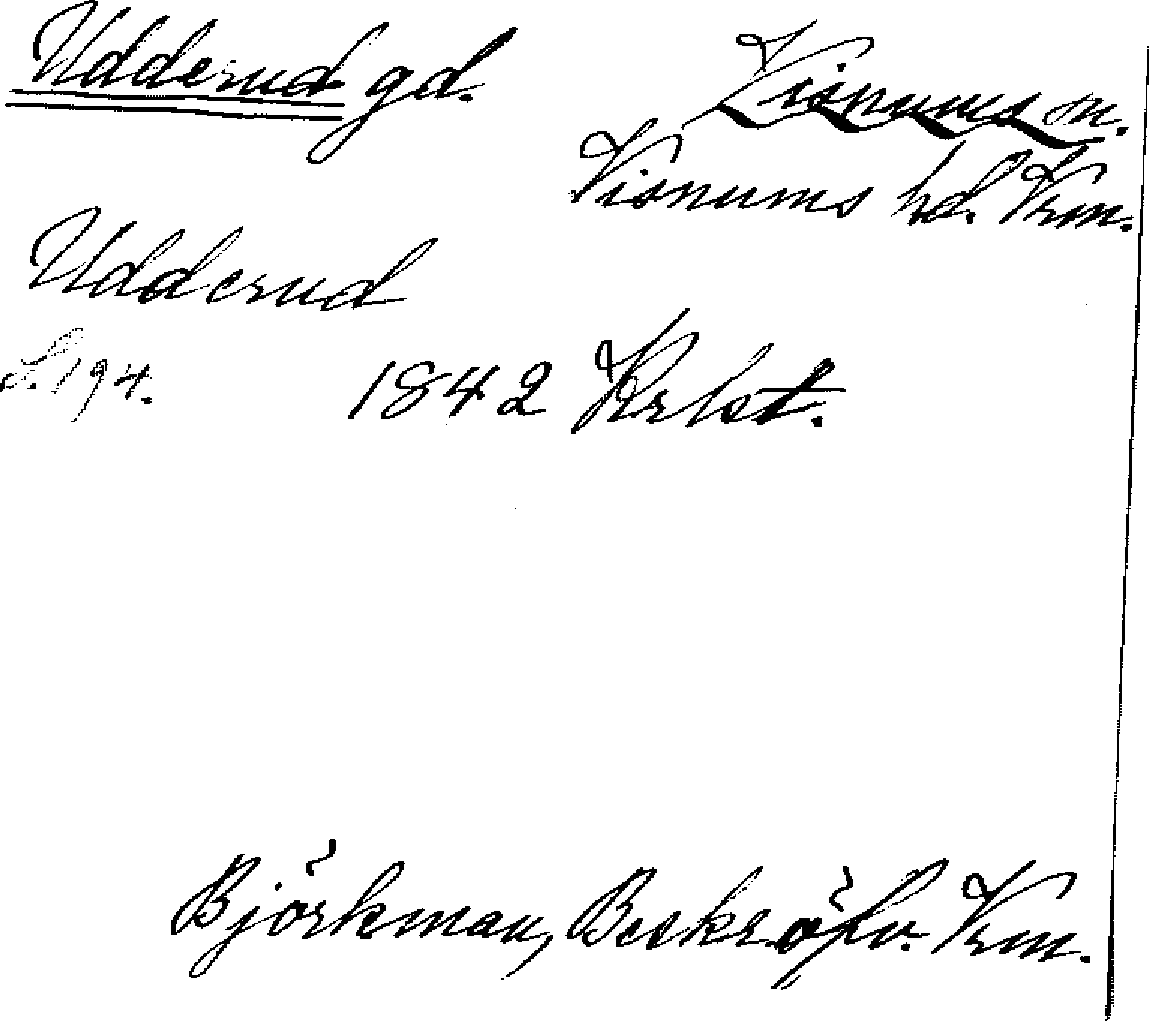 Udderud gd.
Visnums sn.
Visnums hd. Vrm.
Udderud
S. 194.
1842 Krlst.
Björkman, Beskr. öfv. Vrm.